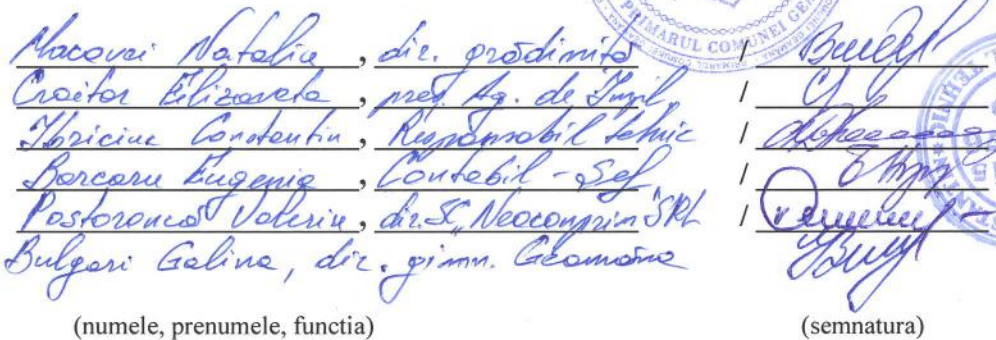 PRIMARUL COMUNEI
Macovei Natalia, dir. grădiniță /
Croitor Elizaveta, preș. Ag. de Impl. /
Constantin, Responsabil tehnic /
Borcaru Eugenia, Contabil - Șef /
Valeriu, dir. SC „Neoconprim" SRL /
Bulgari Galina, dir. gimn. Geamăna
(numele, prenumele, functia) (semnatura)